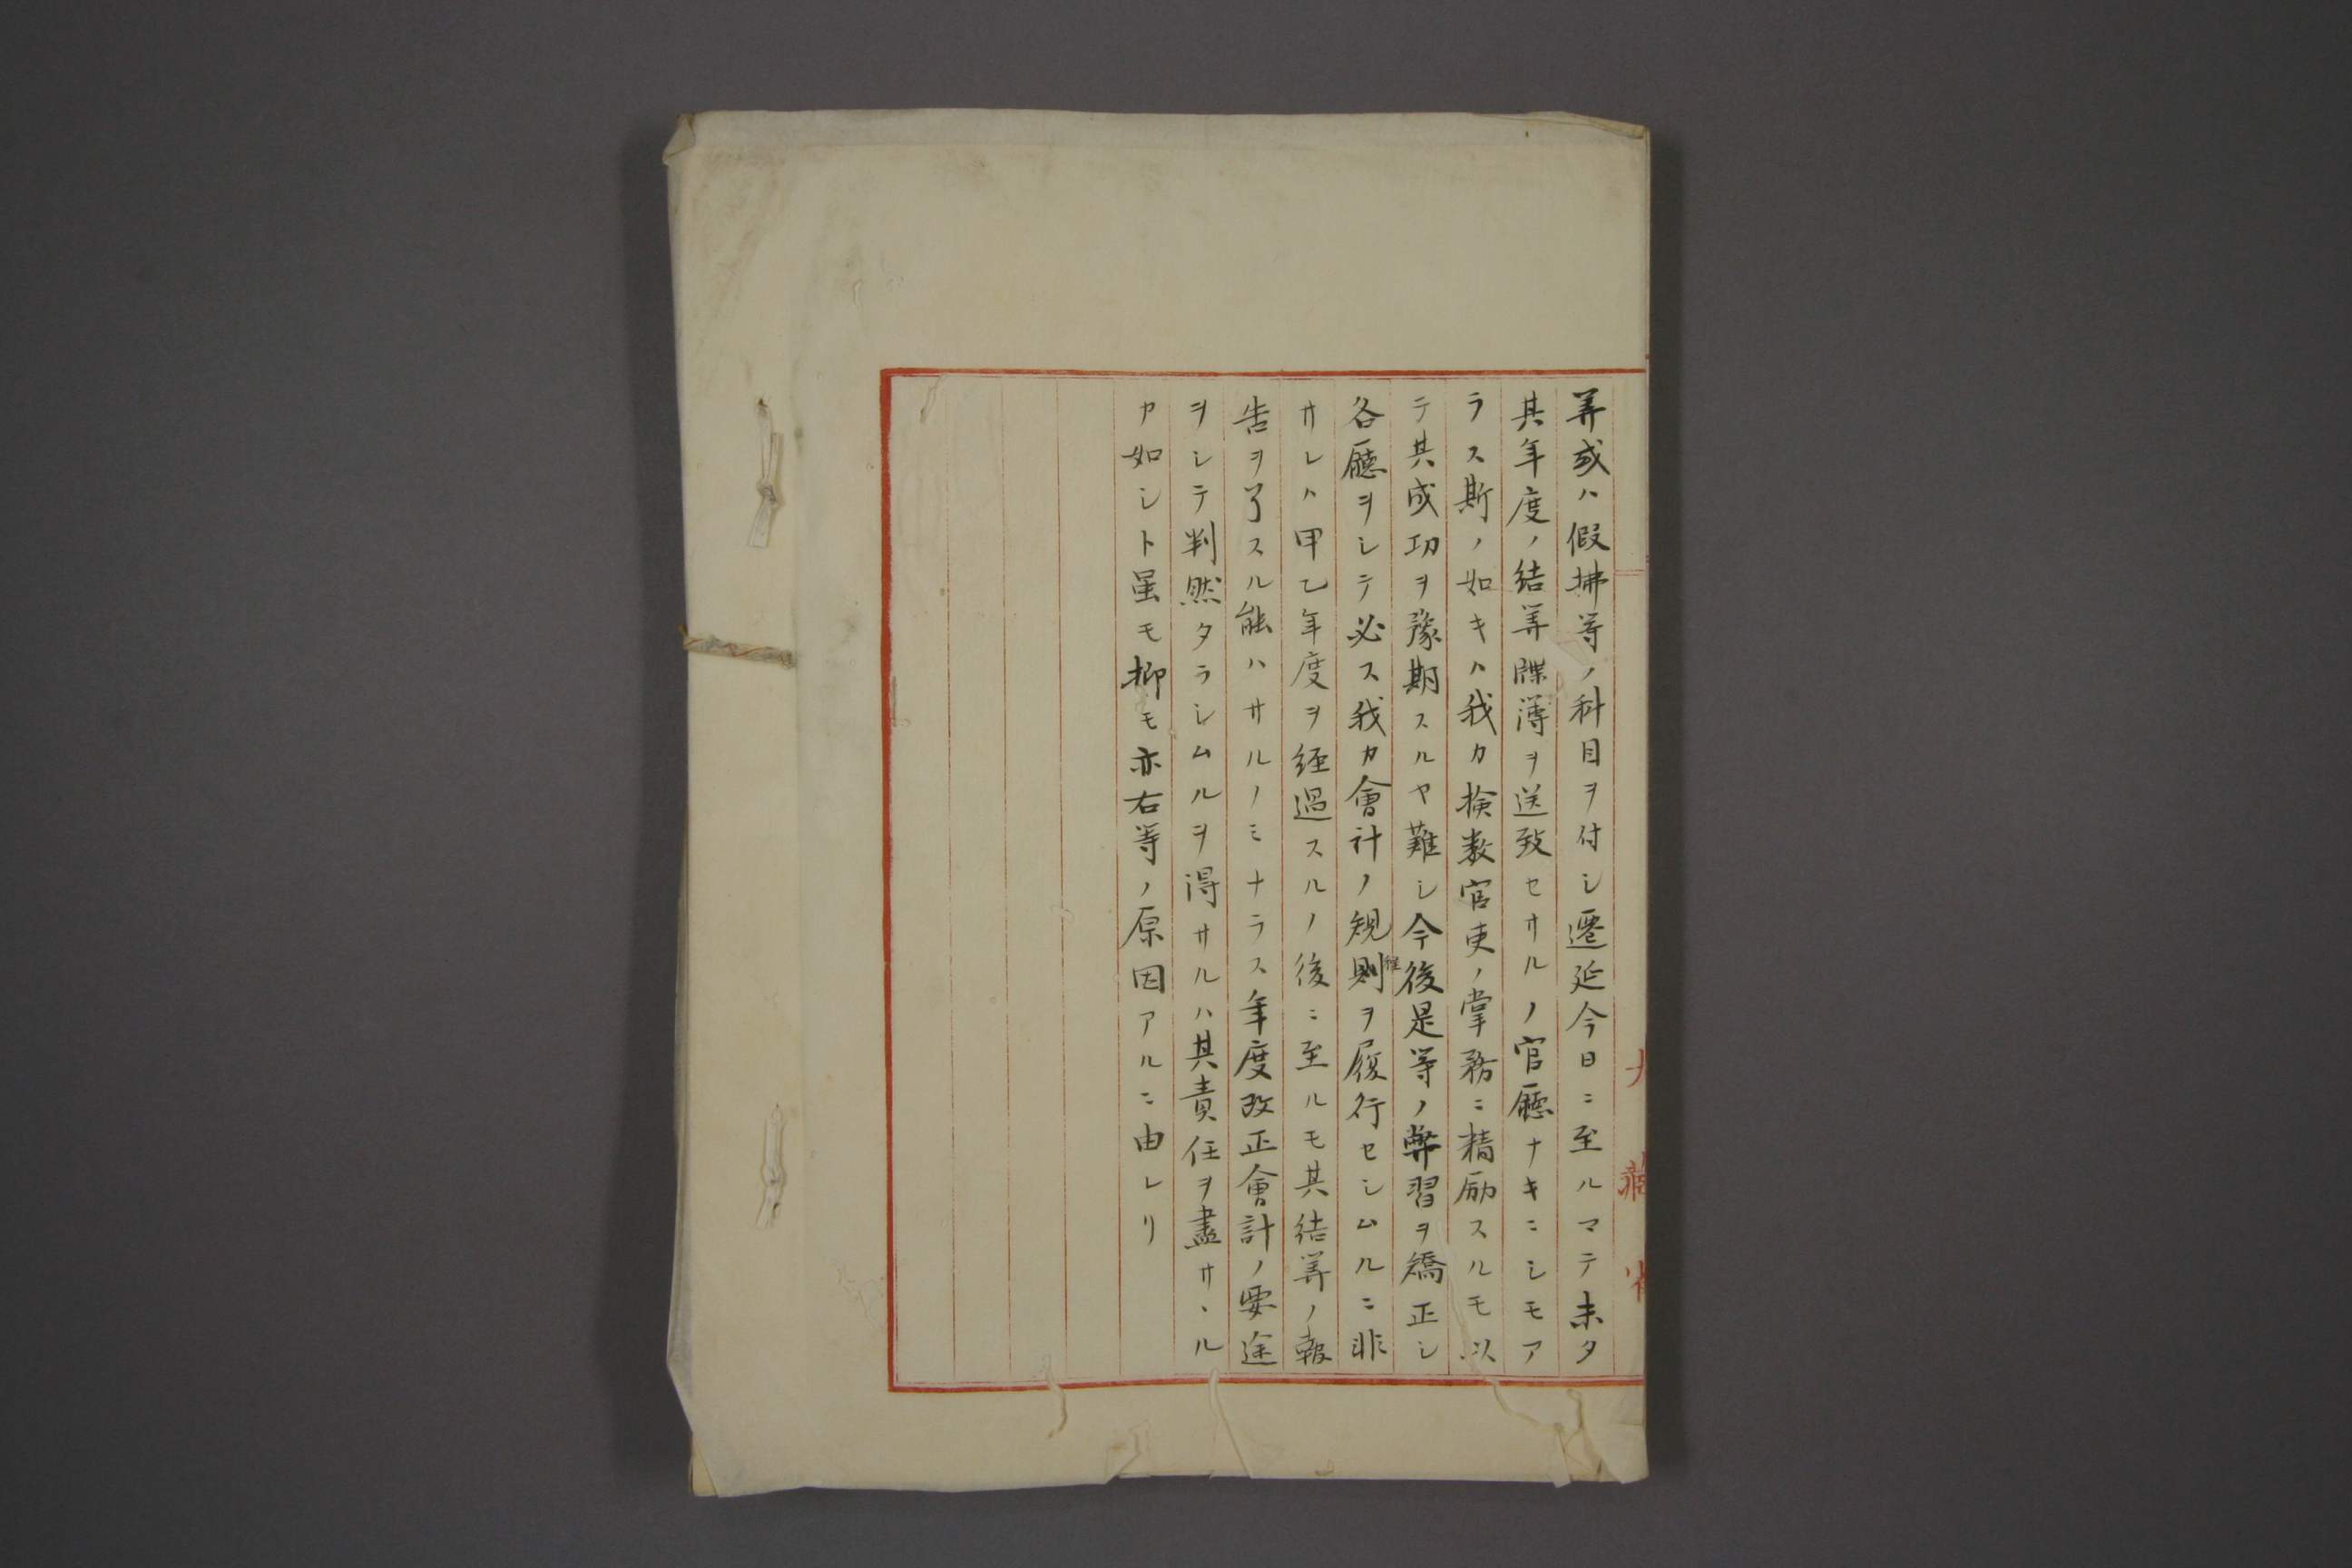 大藏省
筭或ハ假拂等ノ科目ヲ付シ遷延今日ニ至ルマテ未タ
其年度ノ結筭牒薄ヲ送致セサルノ官廳ナキニシモア
ラス斯ノ如キハ我カ検数官吏ノ掌務ニ精励スルモ以
テ其成功ヲ豫期スルヤ難シ今後是等ノ弊習ヲ矯正シ
各廳ヲシテ必ス我カ會計ノ規則ヲ履行セシムルニ非
サレハ甲乙年度ヲ経過スルノ後ニ至ルモ其結筭ノ報
告ヲ了スル能ハサルノミナラス年度改正會計ノ要途
ヲシテ判然タラシムルヲ得サルハ其責任ヲ盡サヽル
カ如シト虽モ抑モ亦右等ノ原因アルニ由レリ